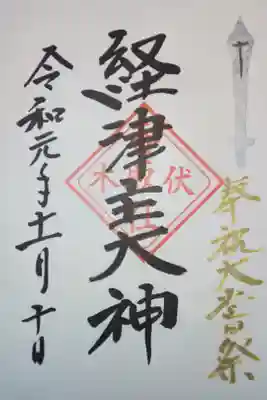 奉祝大嘗祭
経津主大神
令和元年十一月十日